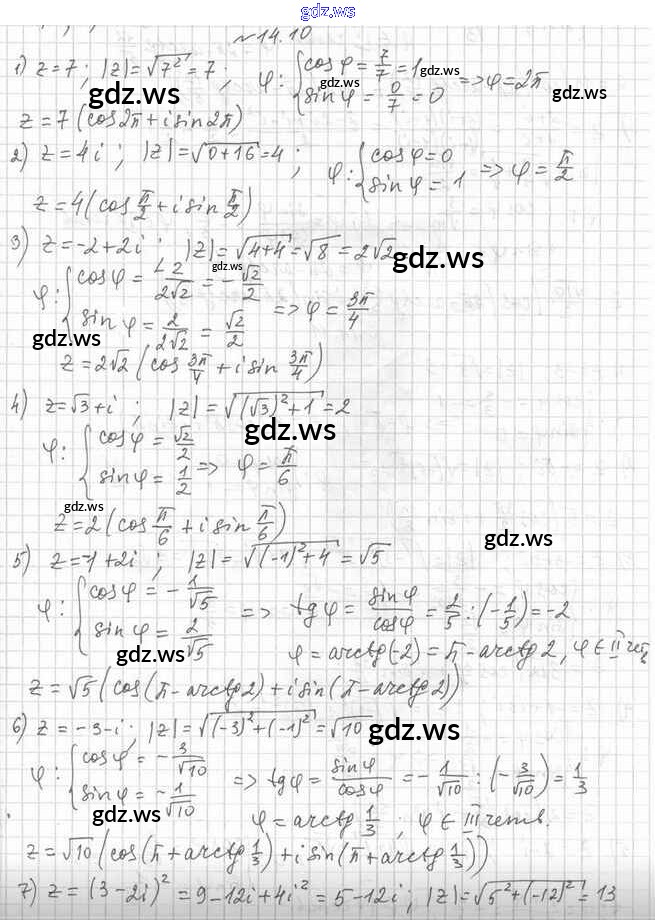 gdz.ws
№14.10
1) z = 7 ; |z| = √7² = 7 ; φ: { cos φ = 7/7 = 1 sin φ = 0/7 = 0 => φ = 2π
gdz.ws
gdz.ws
gdz.ws
gdz.ws
z = 7 (cos 2π + i sin 2π)
2) z = 4i ; |z| = √(0+16) = 4 ; φ: { cos φ = 0 sin φ = 1 => φ = π/2
z = 4 (cos π/2 + i sin π/2)
3) z = -2+2i ; |z| = √(4+4) = √8 = 2√2
gdz.ws
gdz.ws
φ: { cos φ = -2/2√2 = -√2/2
sin φ = 2/2√2 = √2/2 => φ = 3π/4
gdz.ws
z = 2√2 (cos 3π/4 + i sin 3π/4)
4) z = √3 + i ; |z| = √((√3)²+1) = 2
gdz.ws
φ: { cos φ = √2/2
sin φ = 1/2 => φ = π/6
gdz.ws
z = 2 (cos π/6 + i sin π/6)
gdz.ws
5) z = -1 + 2i ; |z| = √((-1)²+4) = √5
φ: { cos φ = -1/√5
sin φ = 2/√5 => tg φ = sin φ/cos φ = 2/5 : (-1/5) = -2
gdz.ws
φ = arctg(-2) = π - arctg 2, φ ∈ II чет
z = √5 (cos(π - arctg 2) + i sin(π - arctg 2))
6) z = -3-i ; |z| = √((-3)²+(-1)²) = √10
gdz.ws
φ: { cos φ = -3/√10
sin φ = -1/√10 => tg φ = sin φ/cos φ = -1/√10 : (-3/√10) = 1/3
gdz.ws
φ = arctg 1/3 ; φ ∈ III четв.
z = √10 (cos(π + arctg 1/3) + i sin(π + arctg 1/3))
7) z = (3-2i)² = 9-12i+4i² = 5-12i ; |z| = √(5²+(-12)²) = 13